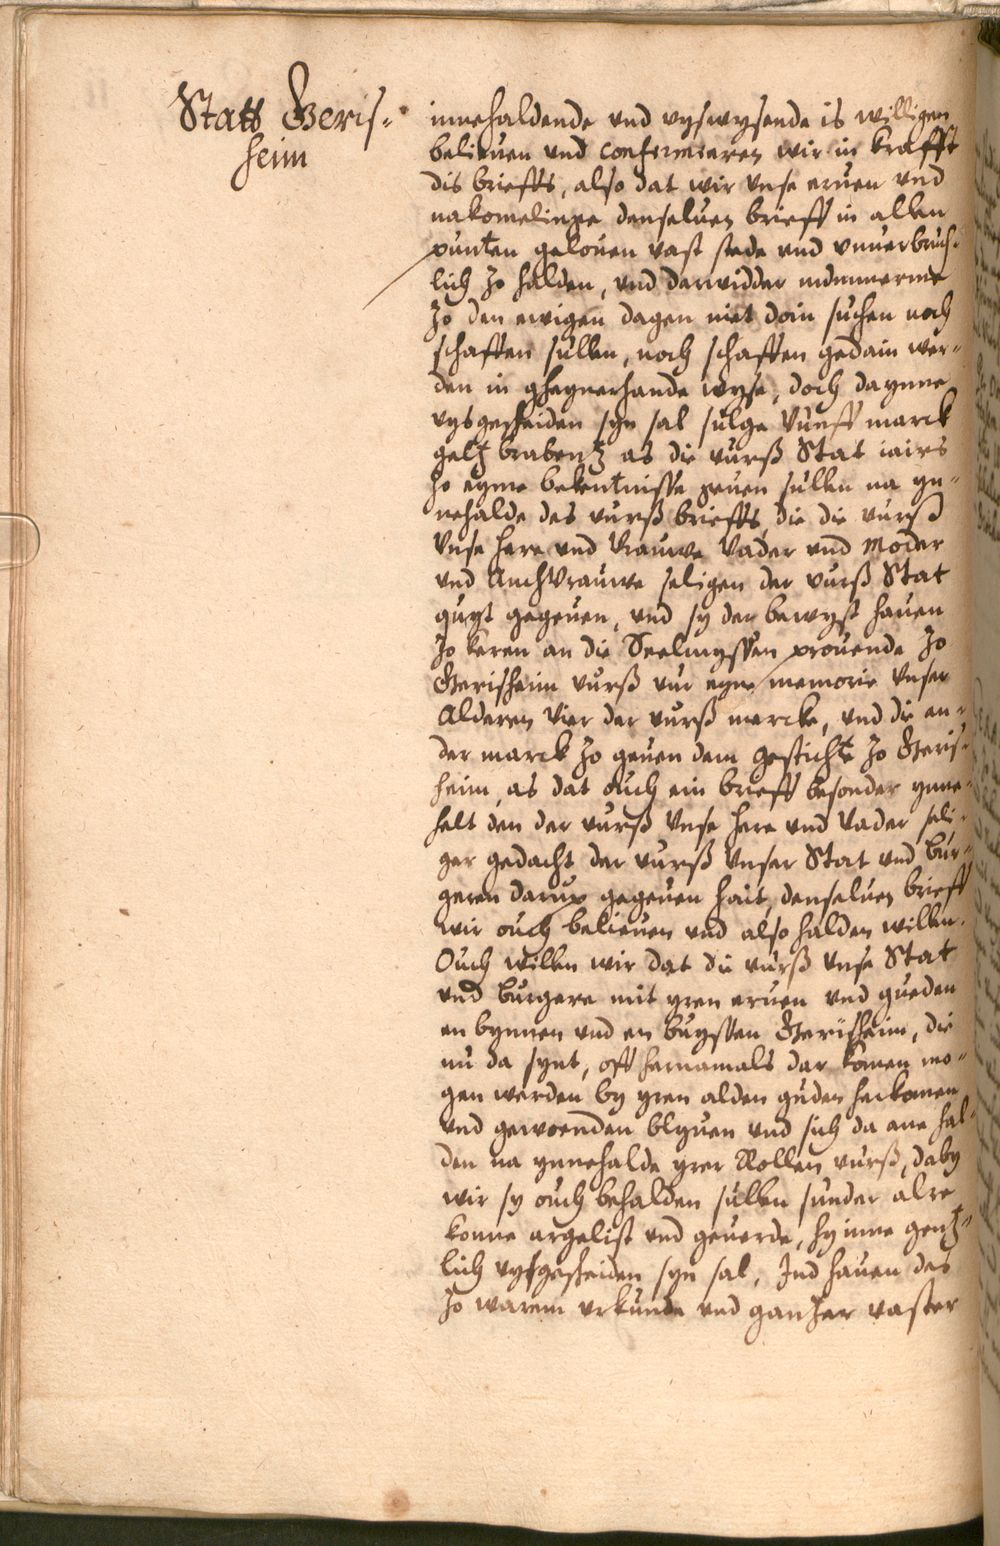 Statt Geris-
heim
innehaldende und uyswysende is willigen
belieuen und confirmeren wir in krafft
dis brieffs, also dat wir unse eruen und
nakomelinge denseluen brieff in allen
punten gelouen vast stede und unuerbruch-
lich zo halden, und darwidder nummerme
zo den ewigen dagen niet doin suchen noch
schaffen sullen, noch schaffen gedain wer-
den in gheynerhande wyse, doch daynne
uysgescheiden syn sal sulge vunff marck
geltz brabentz as die vurß Stat iairs
zo eyme bekentnisse geuen sullen na yn-
nehalde des vurß brieffs, die die vurß
unse here und vrauwe vader und moder
und Anchvrauwe seligen der vurß Stat
quyt gegeuen, und sy der bewyst hauen
zo keren an die Seelmyssen prouende zo
Gerisheim vurß vur eyne memorie unser
Alderen vier der vurß marcke, und die an-
der marck zo geuen dem gestichte zo Geris-
heim, as dat ouch ein brieff besonder ynne-
helt den der vurß unse here und vader seli-
ger gedacht der vurß unser Stat und bur-
geren darup gegeuen hait, denseluen brieff
wir ouch belieuen und also halden willen.
Ouch willen wir dat die vurß unse Stat
und burgere mit yren eruen und gueden
en bynnen und en buyssen Gerisheim, die
nu da synt, off hernamals dar komen mo-
gen werden by yren alden guden herkomen
und gewoenden blyuen und sich da ane hal-
den na ynnehalde yrer Rollen vurß, daby
wir sy ouch behalden sullen sunder alre
konne argelist und geuerde, hy inne gentz-
lich uysgescheiden syn sal, Ind hauen des
zo warem urkunde und ganzer vaster